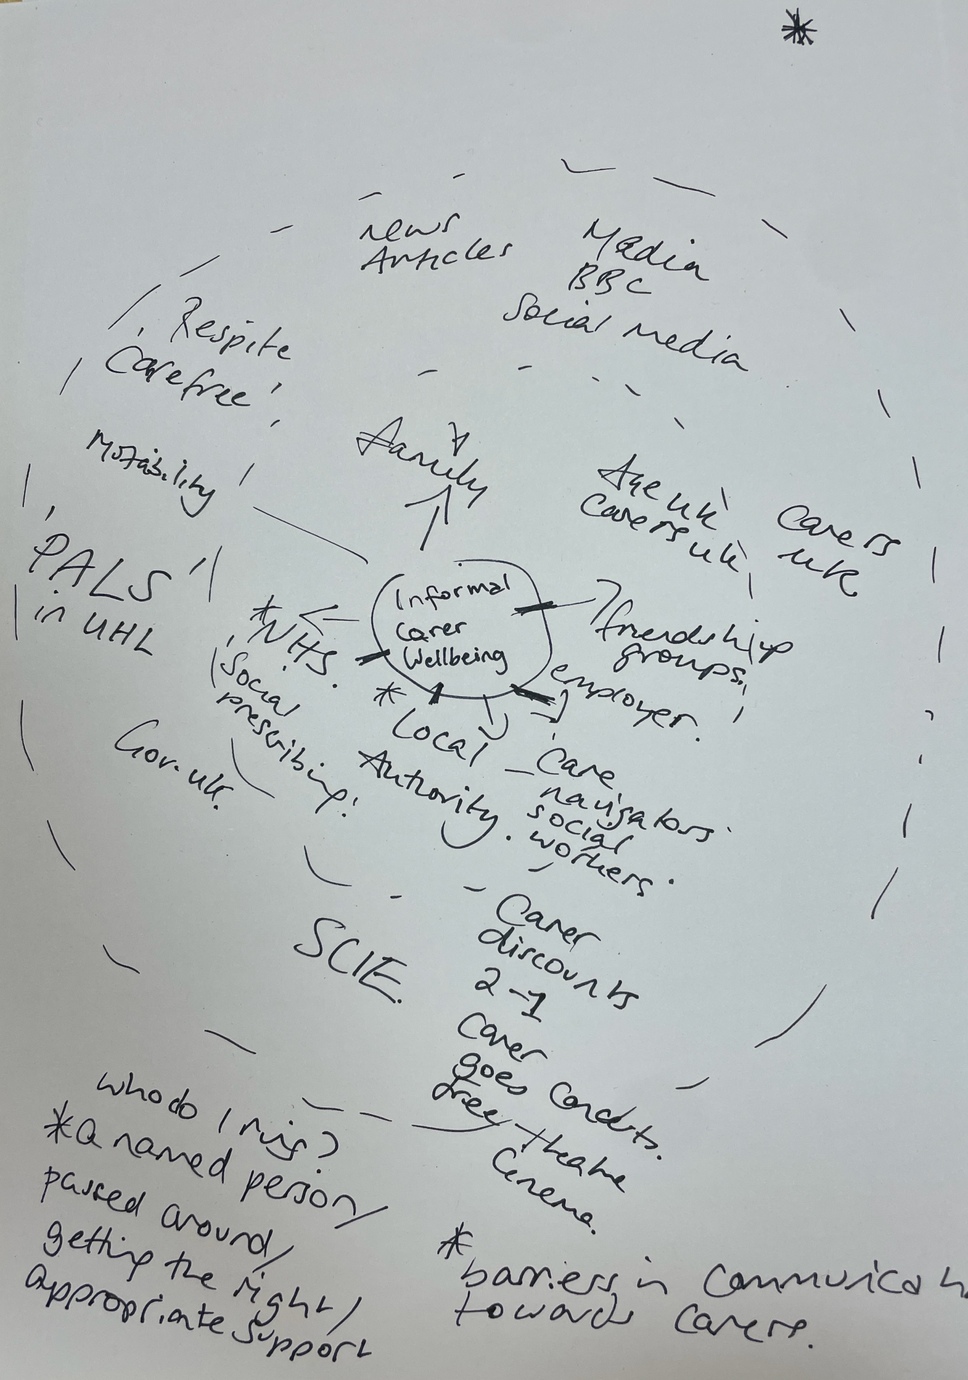 *
News
Articles
Media
BBC
Social media
'Respite
Carefree'
Motability
family
Age uk
Carers uk
Carers
uk
'PALS'
in UHL
Informal
Carer
Wellbeing
*NHS.
'Social
prescribing'.
friendship
groups
employer.
*
Local
Authority.
- Care
navigators
social
workers.
Gov.uk.
SCIE.
Carer
discounts
2-1
Carer
goes
free
Concerts.
theatre
Cinema.
who do I ring?
*a named person/
passed around/
getting the right/
appropriate support
*
barriers in
towards carers.